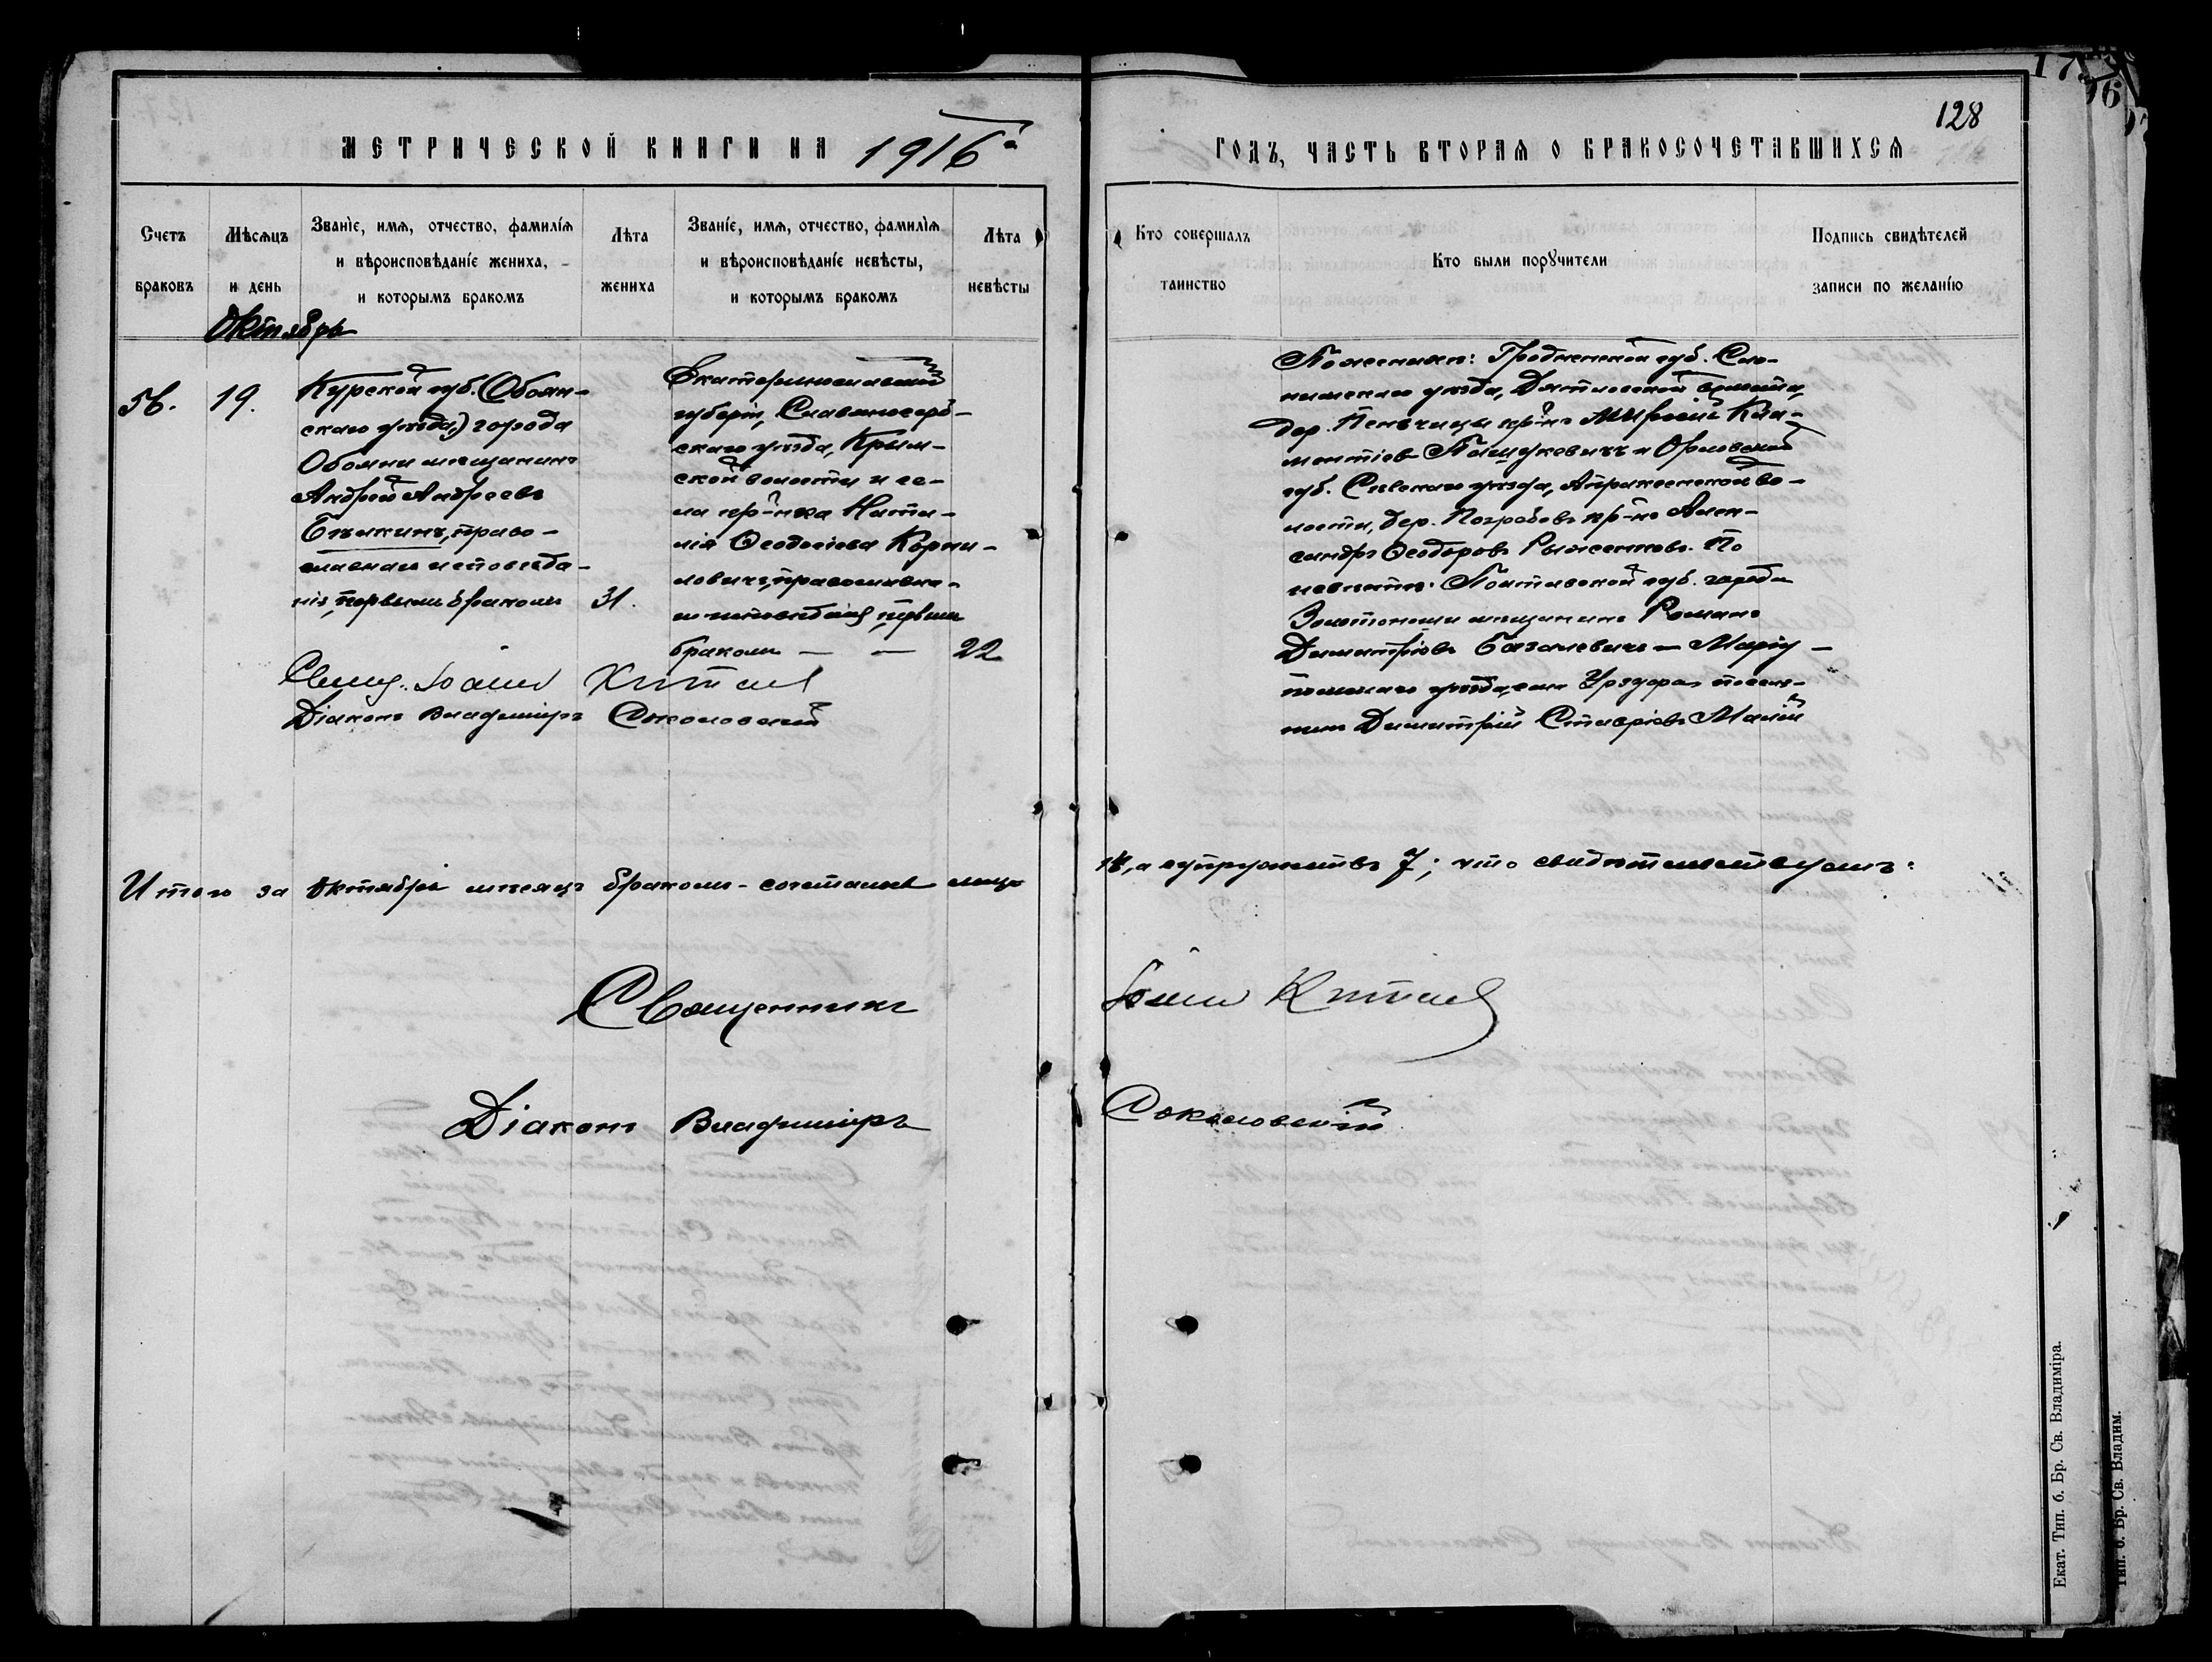 128
МЕТРИЧЕСКОЙ КНИГИ НА 1916 ГОДЪ, ЧАСТЬ ВТОРАЯ О БРАКОСОЧЕТАВШИХСЯ
Счетъ браковъ
Мѣсяцъ и день
Званіе, имя, отчество, фамилія
и вѣроисповѣданіе жениха,
и которымъ бракомъ
Лѣта жениха
Званіе, имя, отчество, фамилія
и вѣроисповѣданіе невѣсты,
и которымъ бракомъ
Лѣта невѣсты
Кто совершалъ таинство
Кто были поручители
Подпись свидѣтелей записи по желанію
Октябрь
56.
19.
Курской губ. (Обоян-
скаго уѣзда,) города
Обояни мѣщанинъ
Андрей Андреевъ
Бѣлкинъ, право-
славнаго исповѣда-
нія, первымъ бракомъ
31.
Екатеринославской
губерніи, Славяносерб-
скаго уѣзда, Крым-
ской волости и се-
ла кр-нка Ната-
лія Ѳеодосіева Корни-
ловичъ, православна-
го исповѣданія, первымъ
бракомъ — —
22
Свящ. Іоаннъ
Діаконъ Владиміръ Соколовскій
По женихѣ: Гродненской губ. Сло-
нимскаго уѣзда, Дятловской волости,
дер. кр-нъ Кли-
ментіев и Орловской
губ. Сѣвскаго уѣзда, во-
лости, дер. Погребовъ кр-нъ Алек-
сандръ Ѳеодоровъ Рыженковъ. По
невѣстѣ: Полтавской губ. города
Золотоноши мѣщанинъ Романъ
Димитріевъ и Маріу-
польскаго уѣзда, села Урзуфа поселя-
нинъ Димитрій Малій
Итого за Октябрь мѣсяцъ бракомъ сочетались лицъ
14, а супружествъ 7; что свидѣтельствуемъ:
Священникъ Іоаннъ
Діаконъ Владиміръ Соколовскій
Екат. Тип. б. Бр. Св. Владиміра.
Тип. б. Бр. Св. Владим.